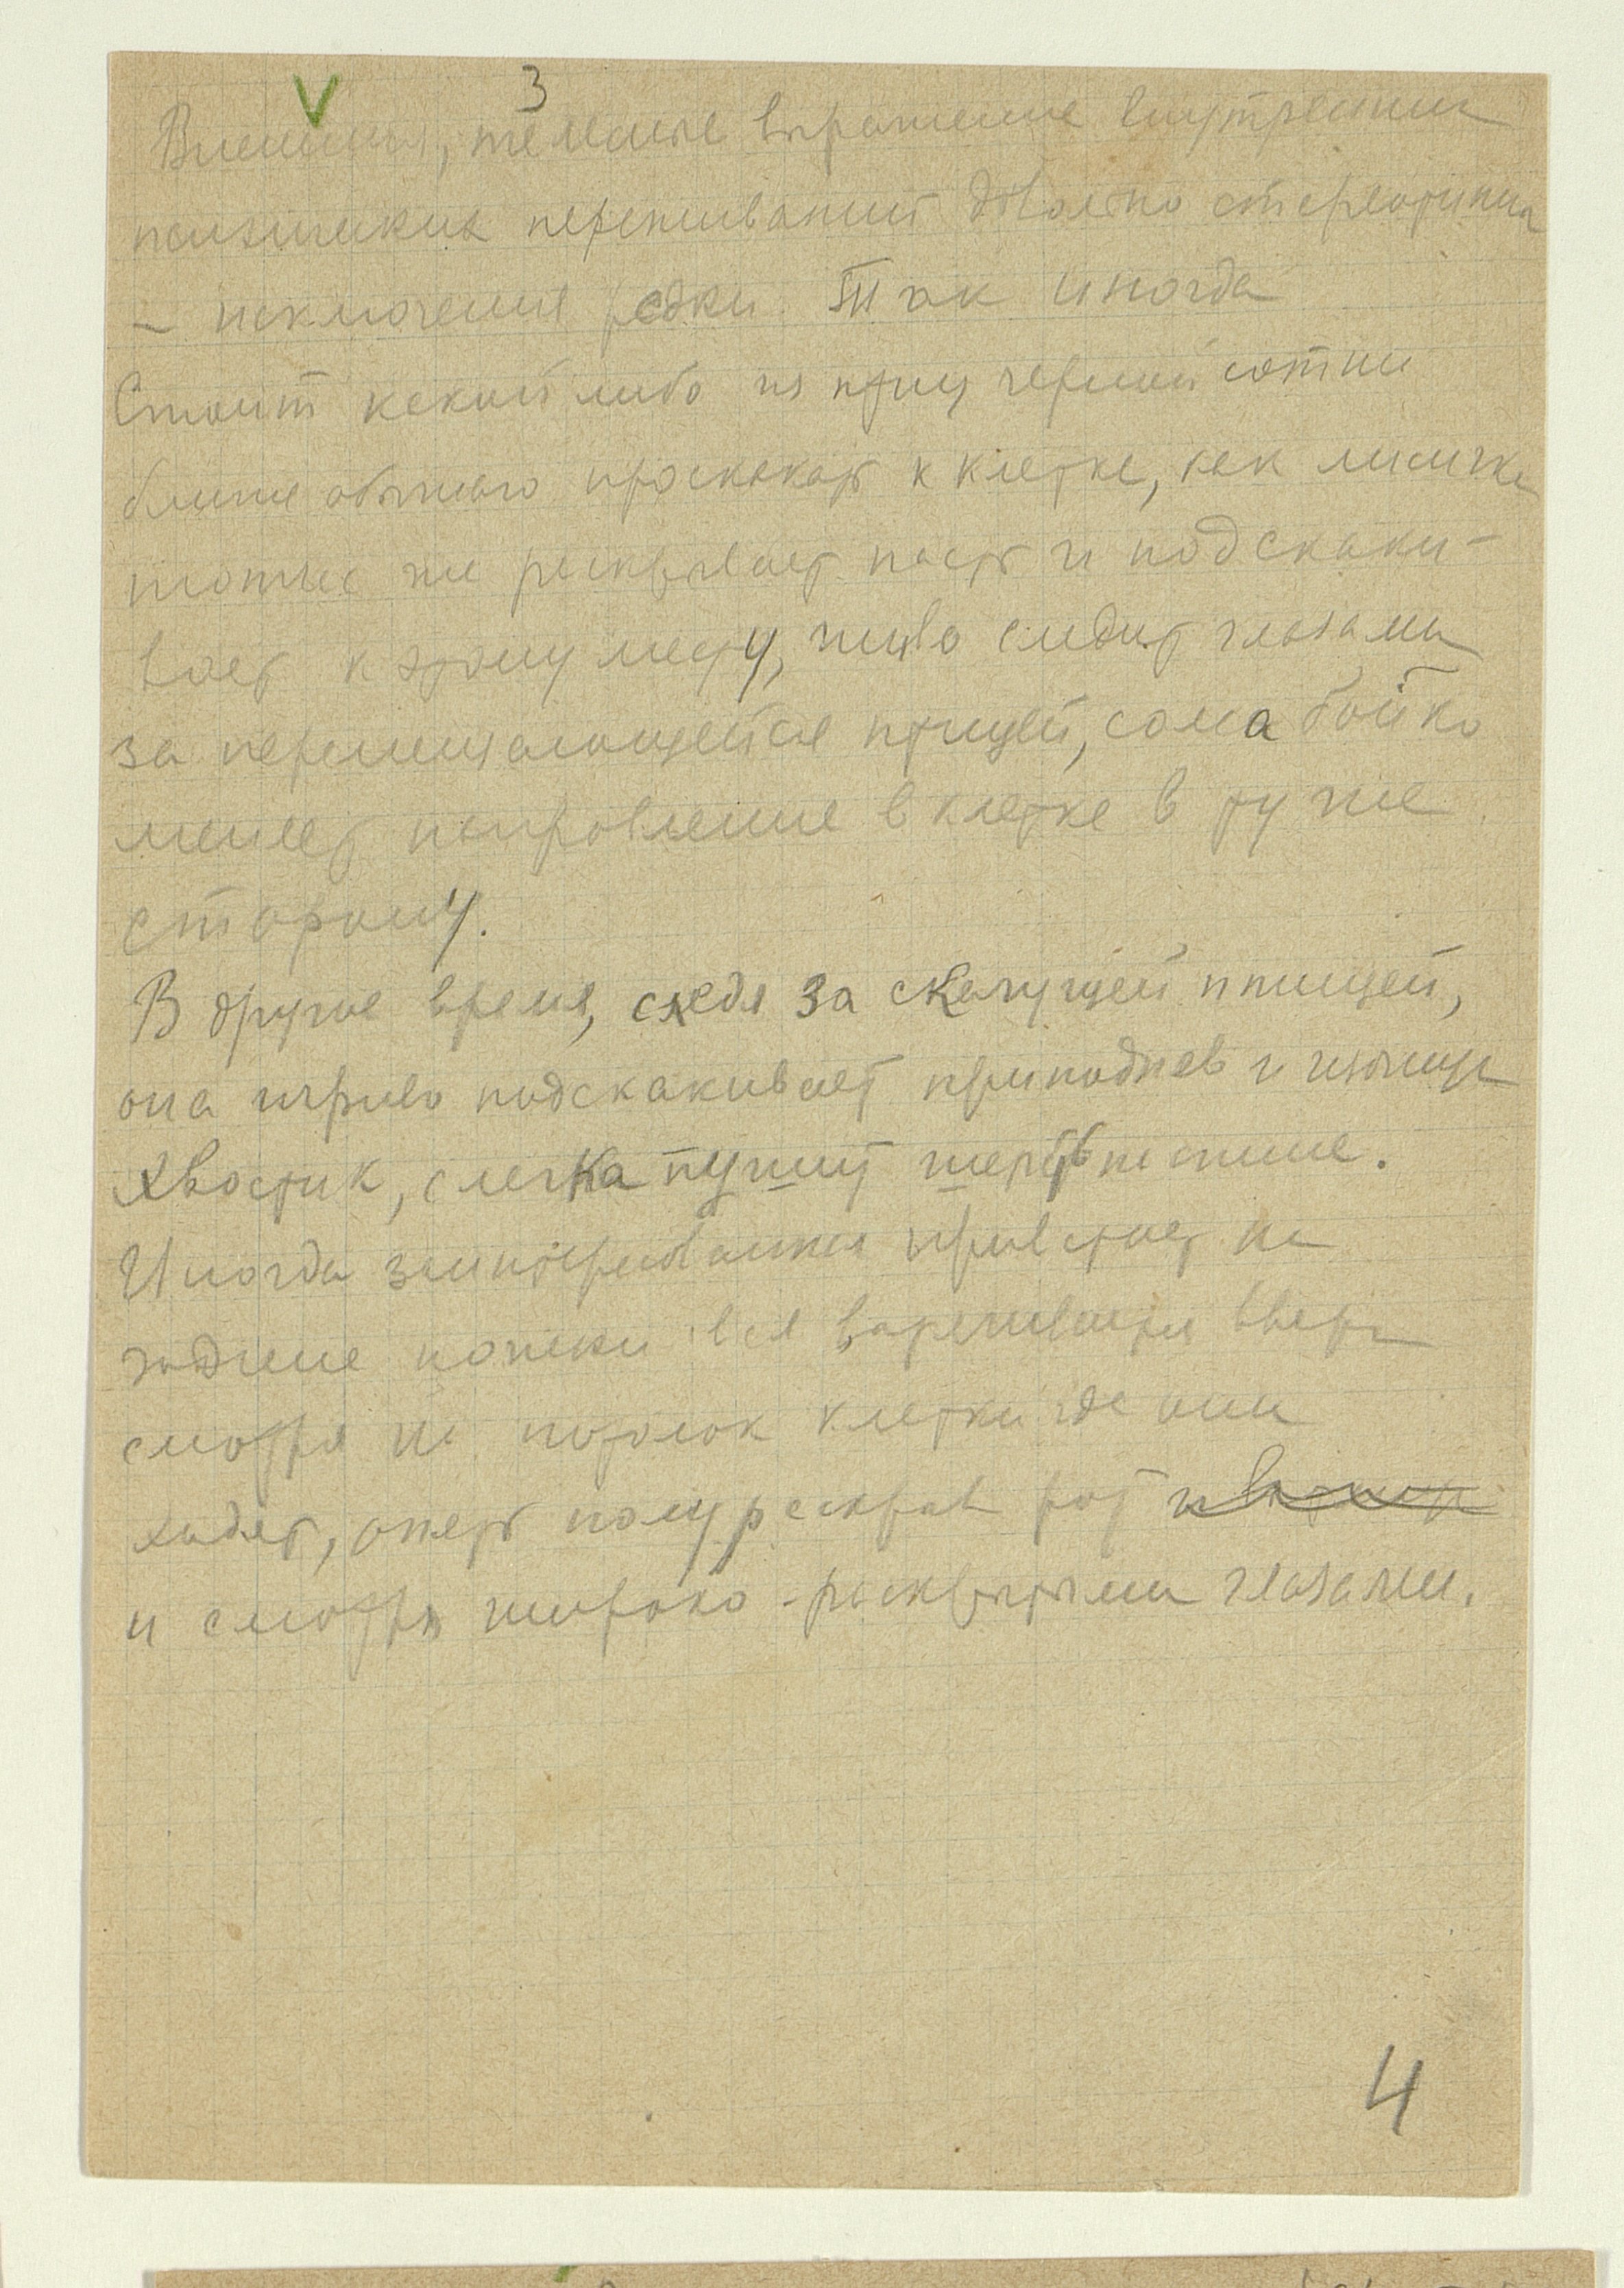 3
Внешния, телесные выражение внутренних
психических переживаний довольно стереотипны
– исключения редки. Так иногда
Стоит какой либо из птиц черный сотни
ближе обычного проскакать к клетке, как лисичка
тотчас же раскрывает пасть и подскаки-
вает к этому месту, живо следит глазами
за перемещающейся птицей, сама бойко
меняет направление в клетке в ту же
сторону.
В другое время, следя за скачущей птицей,
она игриво подскакивает приподняв и изогнув
хвостик, слегка пушит шерсть на спине.
Иногда заинтересовавшися привстает на
задние ножки вся вытягивается вверх
смотря на потолок клетки где они
ходят, опять полураскрыв рот и
и смотря широко-раскрытыми глазами.
4